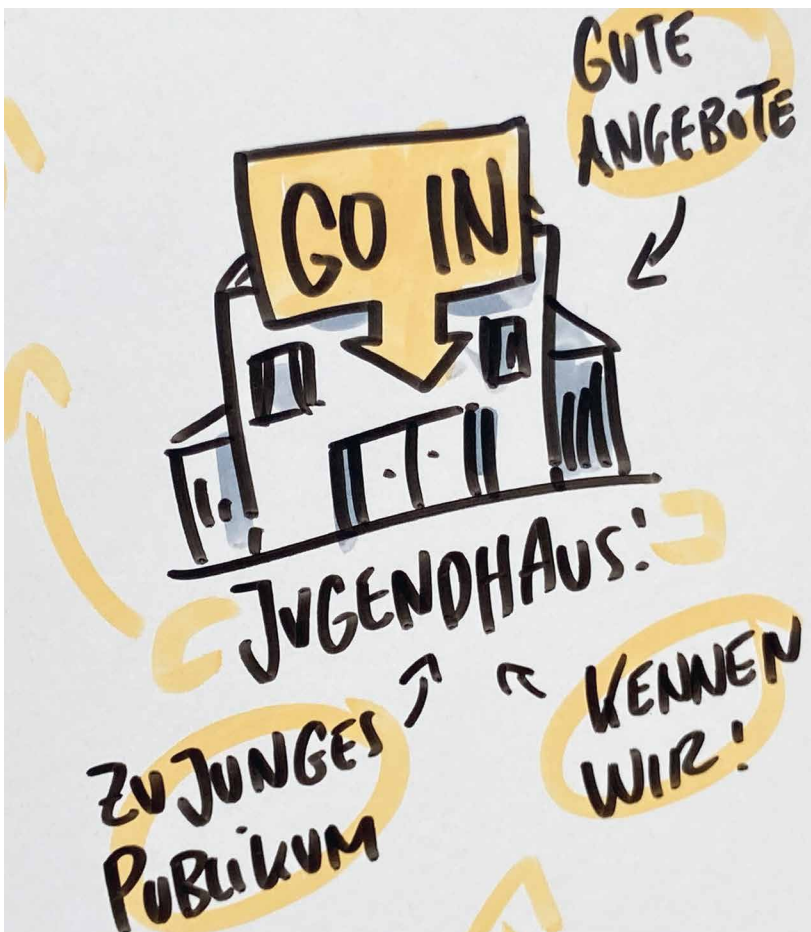 GUTE
ANGEBOTE
GO IN
JUGENDHAUS:
ZU JUNGES
PUBLIKUM
KENNEN
WIR!